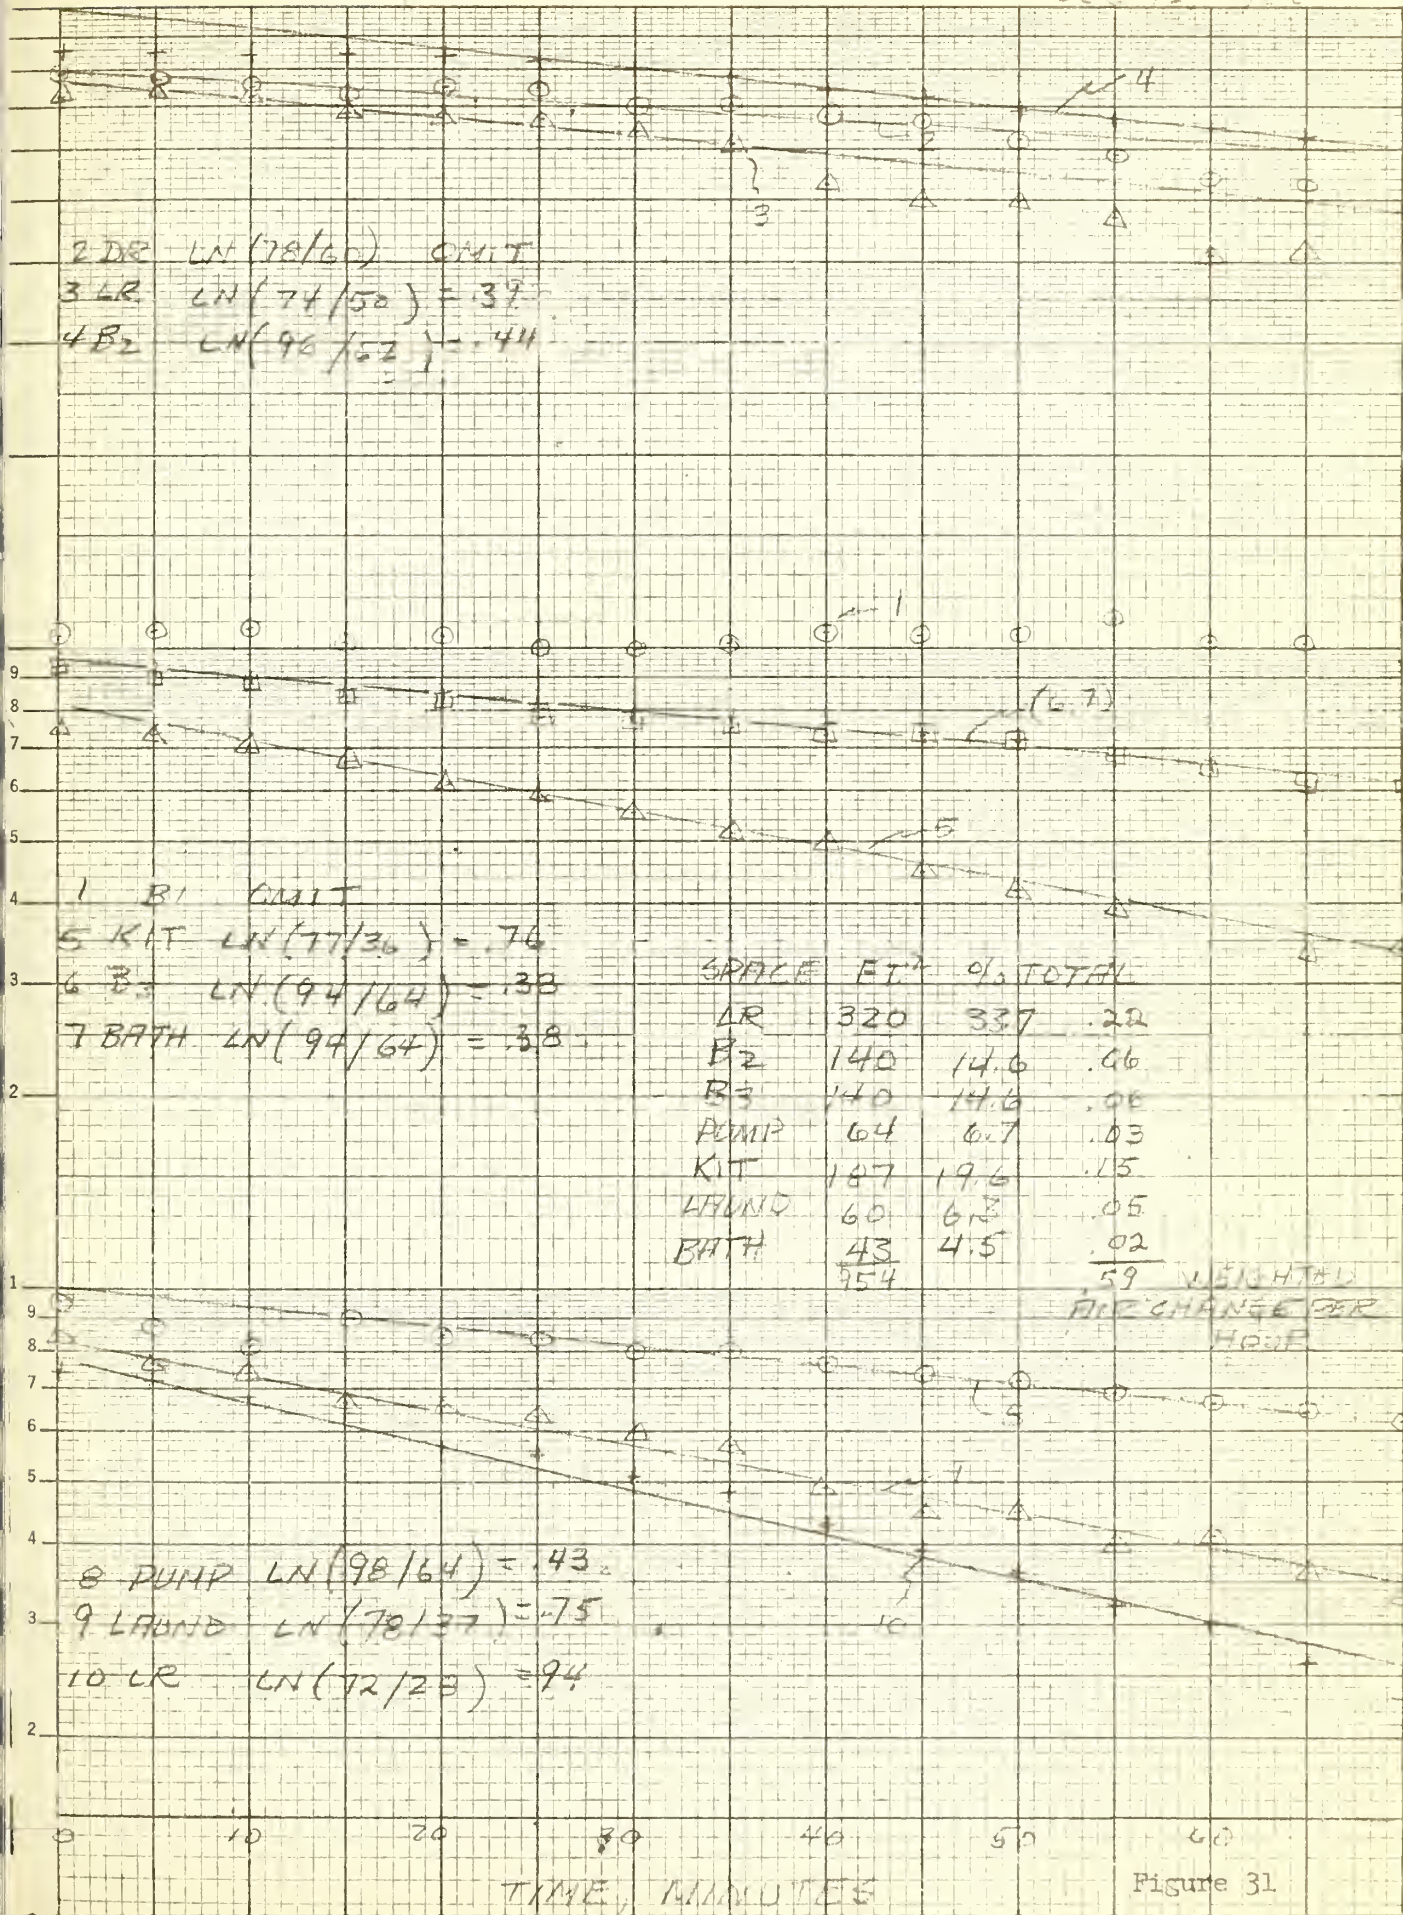 4
2
3
2 DR LN(78/60) OMIT
3 LR LN(74/50) = .39
4 B2 LN(96/62) = .44
1
9
8
(6.7)
7
6
5
5
1 B1 OMIT
4
5 KIT LN(77/36) = .76
6 B3 LN(94/64) = .38
3
7 BATH LN(94/64) = .38
2
SPACE FT² % TOTAL
LR 320 33.7 .22
B2 140 14.6 .06
B3 140 14.6 .06
PUMP 64 6.7 .03
KIT 187 19.6 .15
LAUND 60 6.3 .05
BATH 43 4.5 .02
954 .59 WEIGHTED
AIR CHANGE PER
HOUR
1
9
8
7
6
5
4
10
8 PUMP LN(98/64) = .43
3
9 LAUND LN(78/37) = .75
10 LR LN(72/28) = 94
2
0 10 20 30 40 50 60
TIME, MINUTES
Figure 31